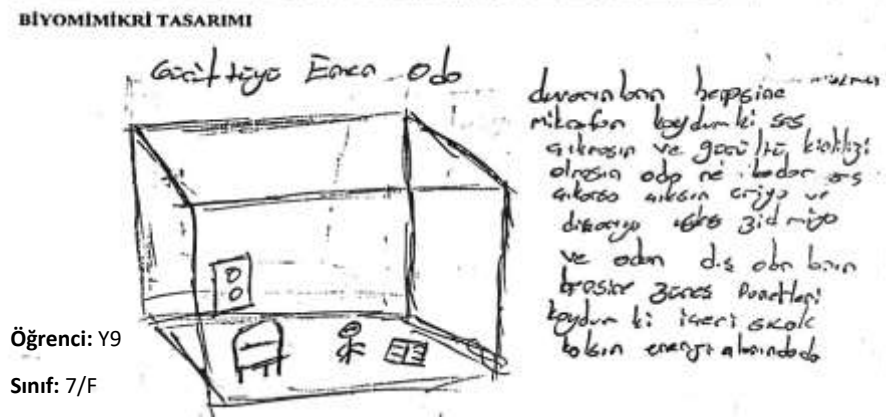 BİYOMİMİKRİ TASARIMI
Gürültüyü Emen Oda
duvarların hepsine
mikrofon koydum ki ses
çıkmasın ve gürültü kirliliği
olmasın oda ne kadar ses
çıkarsa çıksın emiyo ve
dışarıya ses gidmiyo
ve odan dış
hepsine güneş Panelleri
koydum ki içeri sıcak
kalsın enerji
Öğrenci: Y9
Sınıf: 7/F